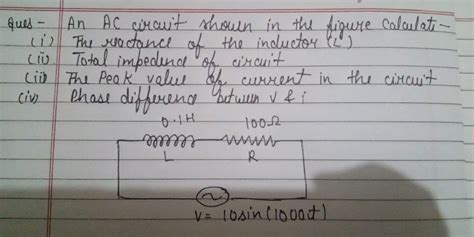 Ques - An AC circuit shown in the figure Calculate -
(i) The reactance of the inductor (L)
(ii) Total impedence of circuit
(iii) The Peak value of current in the circuit
(iv) Phase difference between V & i
0.1H 100Ω
L R
V = 10sin(1000t)